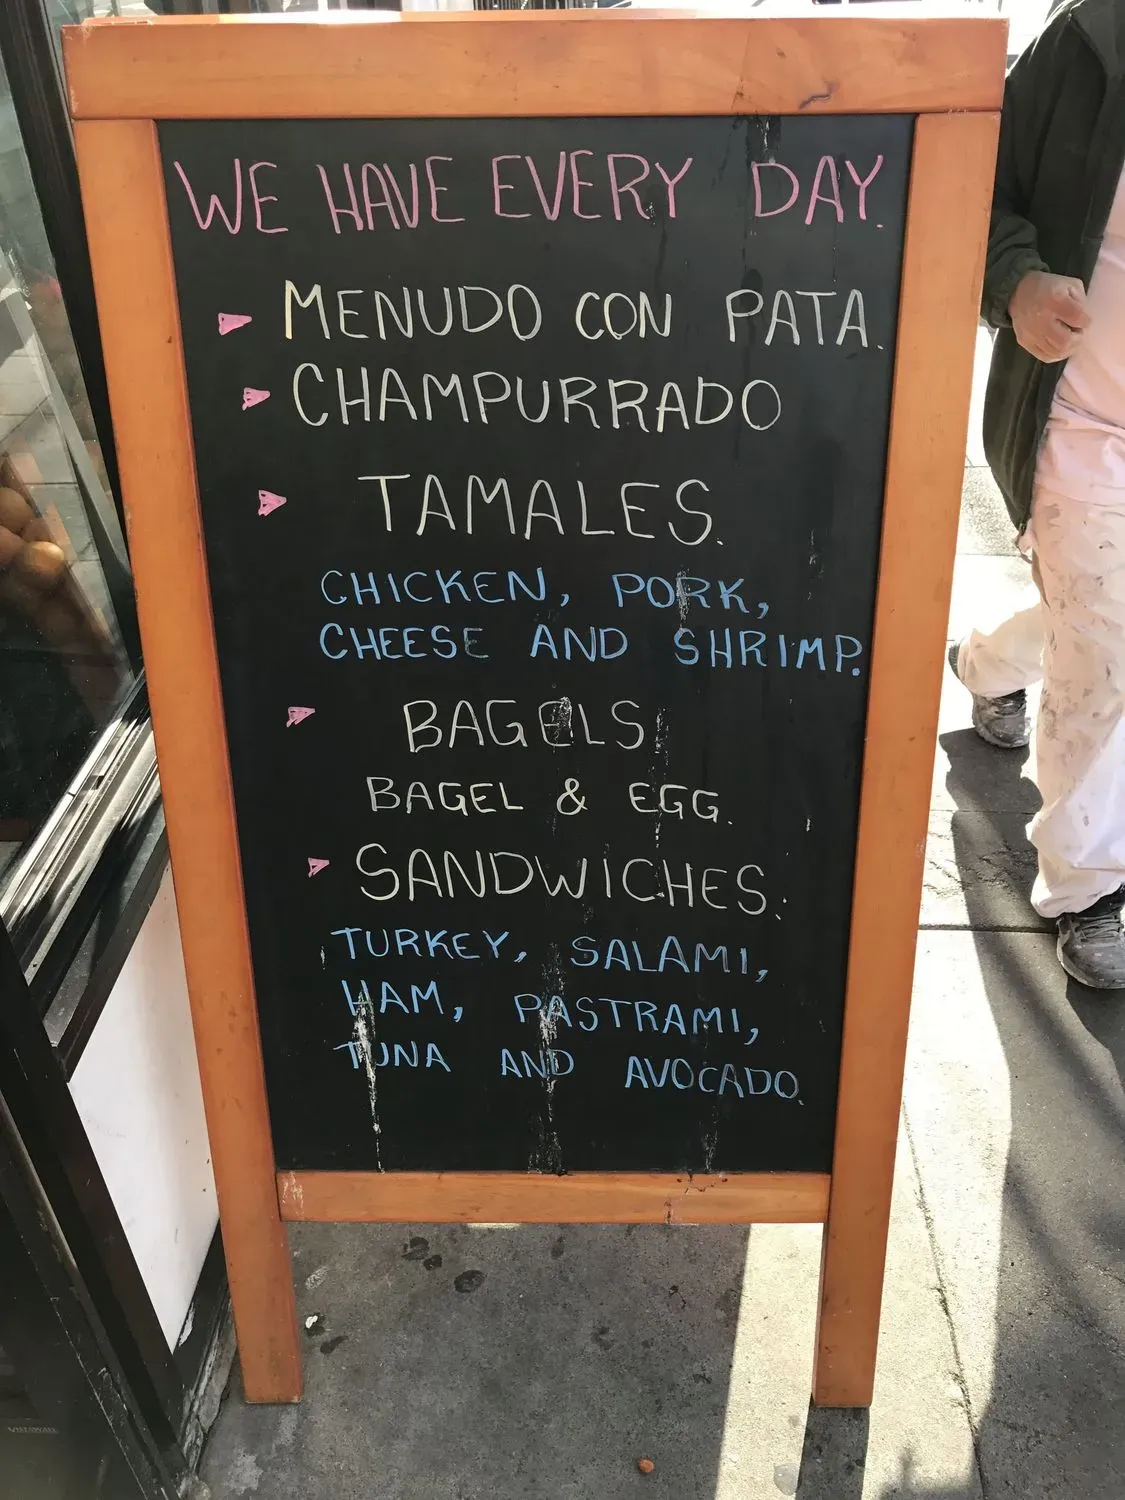 WE HAVE EVERY DAY.
MENUDO CON PATA.
CHAMPURRADO
TAMALES.
CHICKEN, PORK,
CHEESE AND SHRIMP.
BAGELS
BAGEL & EGG.
SANDWICHES:
TURKEY, SALAMI,
HAM, PASTRAMI,
TUNA AND AVOCADO.